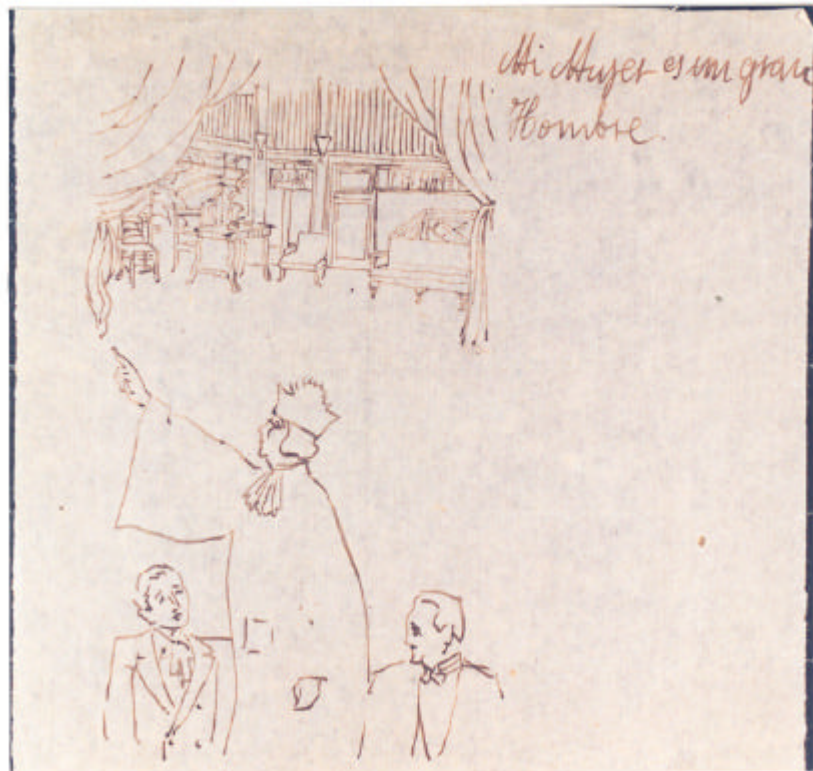 Mi Mujer es un gran
Hombre.